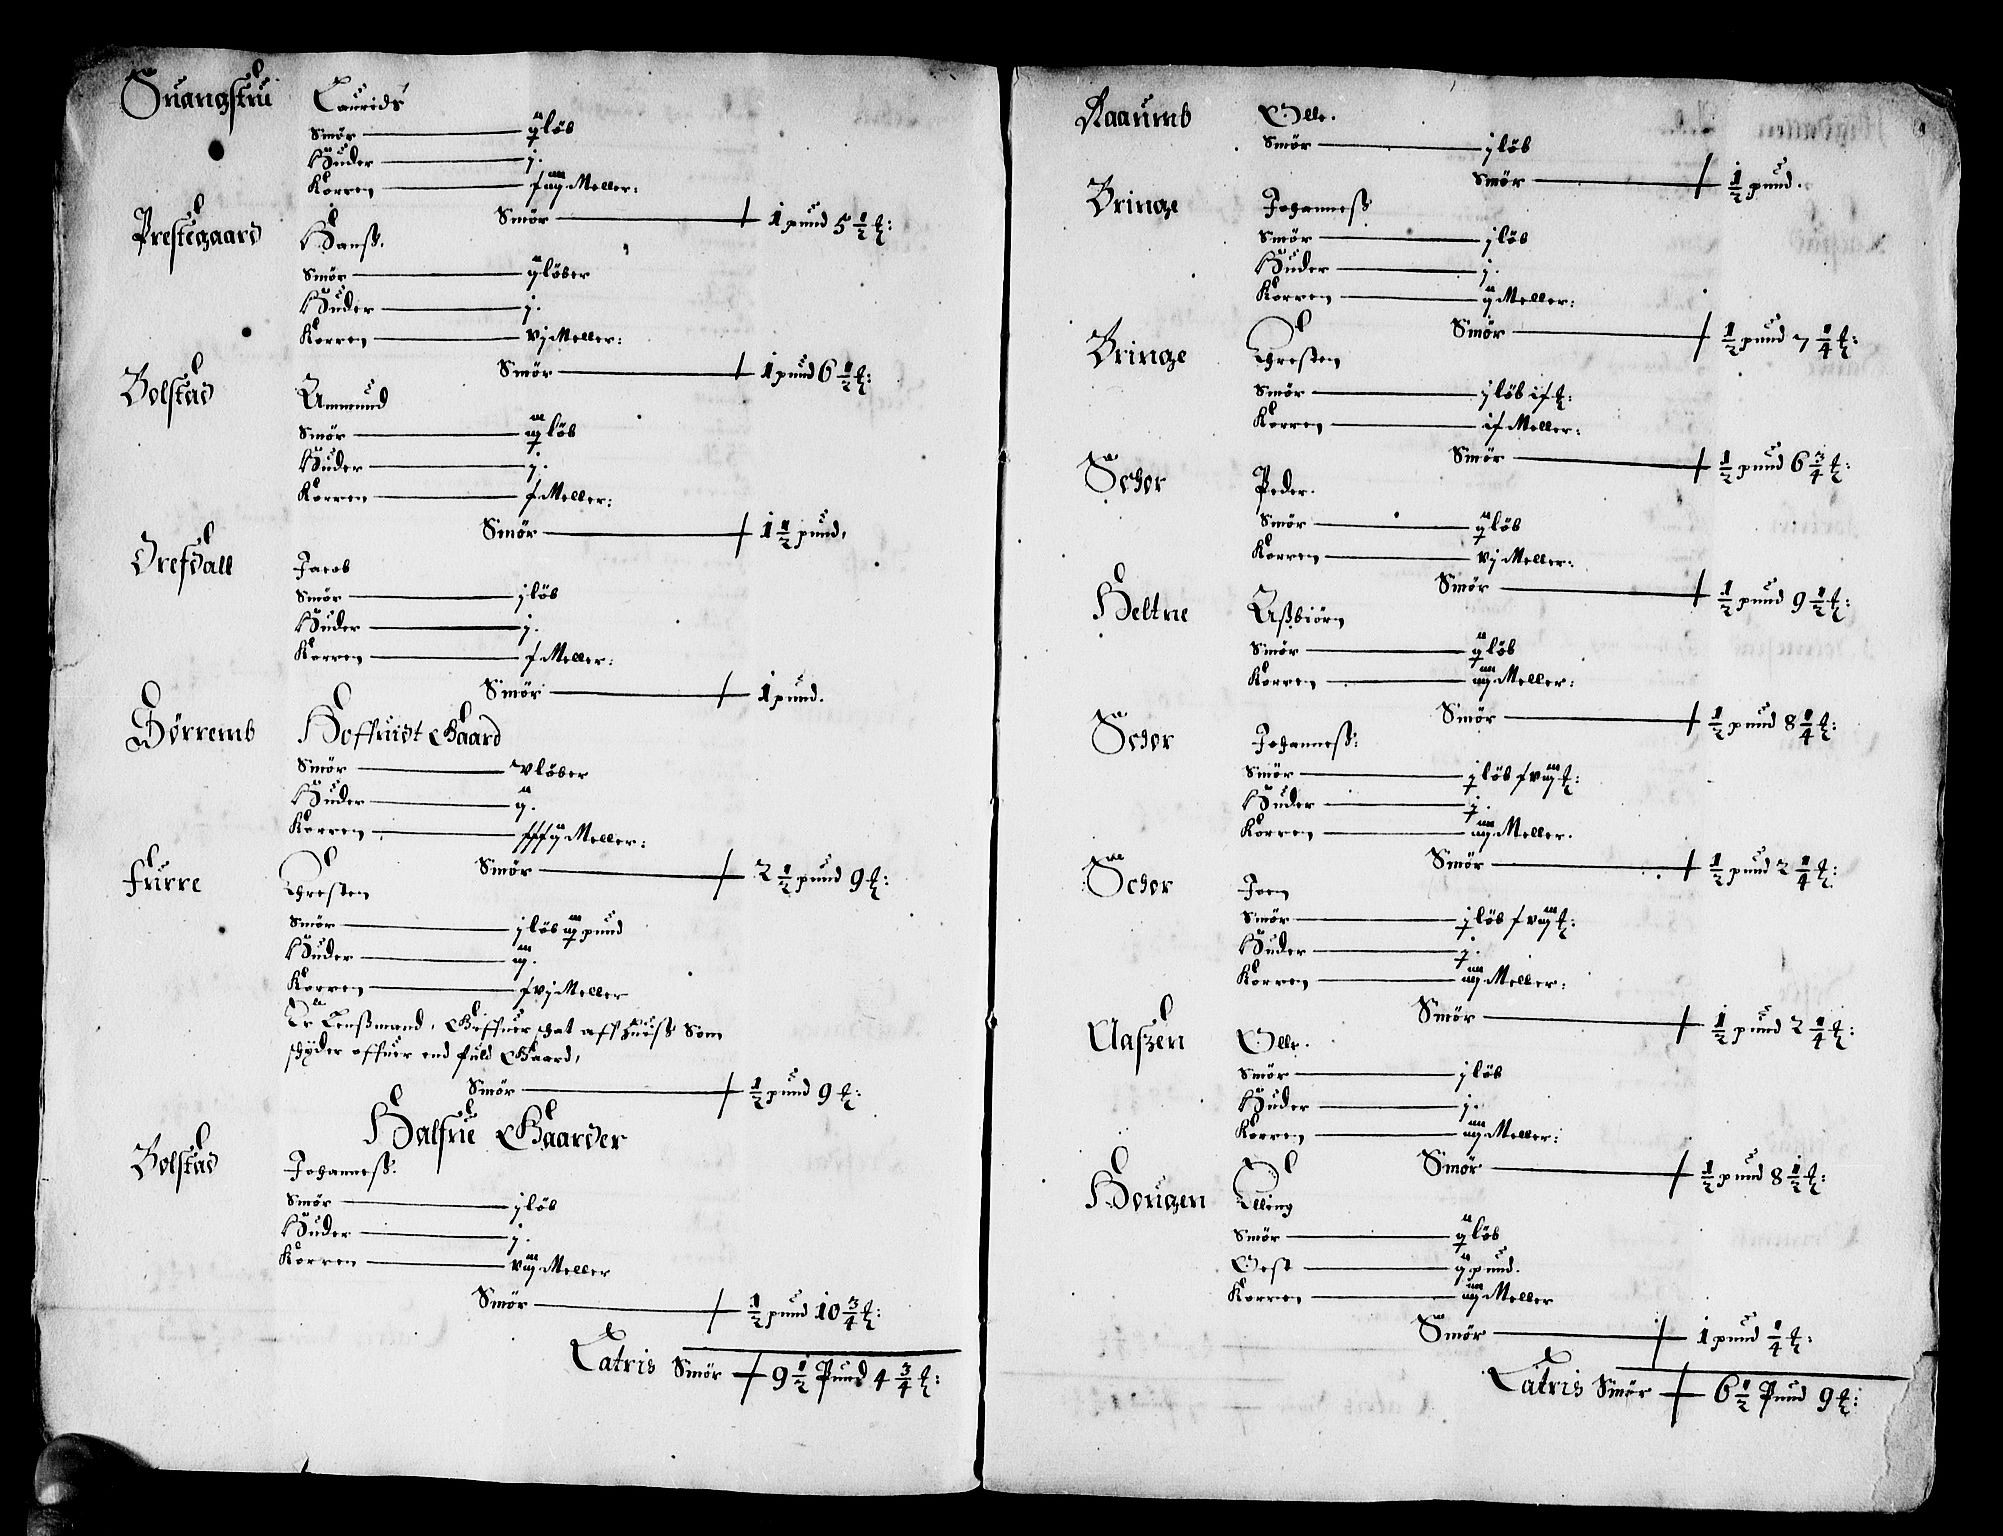 Suangstru Laurids
Smør — ij løb
Huder — j.
Korren — xiiij Meller:
Smør — 1 pund 5 1/2 ℔:
Prestegaard Hanß.
Smør — ij løber
Huder — j.
Korren — vj Meller:
Smør — 1 pund 6 1/2 ℔:
Bolstad Ammund
Smør — iij løb
Huder — j.
Korren — x Meller:
Smør — 1 1/2 pund,
Drefdall Jacob
Smør — j løb
Huder — j.
Korren — x Meller:
Smør — 1 pund.
Børremb Hoffuidt Gaard
Smør — v løber
Huder — ij.
Korren — xxxij Meller:
Smør — 2 1/2 pund 9 ℔:
Furre Chresten
Smør — j løb iij pund
Huder — iij.
Korren — xvj Meller
Er Lenßmand, Giffuer schat aff huiß Som
schyder offuer end fuld Gaard,
Smør — 1/2 pund 9 ℔:
Halfue Gaarder
Bolstad Johanneß:
Smør — j løb
Huder — j.
Korren — viij Meller
Smør — 1/2 pund 10 3/4 ℔:
Latris Smør — 9 1/2 Pund 4 3/4 ℔:
Raaumb Olle.
Smør — j løb
Smør — 1/2 pund.
Bringe Johanneß
Smør — j løb
Huder — j.
Korren — ij Meller:
Smør — 1/2 pund 7 1/4 ℔:
Bringe Chresten
Smør — j løb ix ℔:
Korren — ix Meller:
Smør — 1/2 pund 6 3/4 ℔:
Schor Peder.
Smør — ij løb
Korren — vj Meller:
Smør — 1/2 pund 9 1/2 ℔:
Heltne Aßbiørn
Smør — ij løb
Korren — iiij Meller:
Smør — 1/2 pund 8 1/4 ℔:
Schor Johanneß:
Smør — j løb xviij ℔:
Huder — j.
Korren — iiij Meller.
Smør — 1/2 pund 2 1/4 ℔:
Schor Joen
Smør — j løb xviij ℔:
Huder — j.
Korren — iiij Meller:
Smør — 1/2 pund 2 1/4 ℔:
Aaszen Olle.
Smør — j løb
Huder — j.
Korren — iiij Meller:
Smør — 1/2 pund 8 1/2 ℔:
Hougen Elling
Smør — ij løb
Oest — ij pund.
Korren — iiij Meller
Smør — 1 pund 1/4 ℔:
Latris Smør — 6 1/2 Pund 9 ℔: